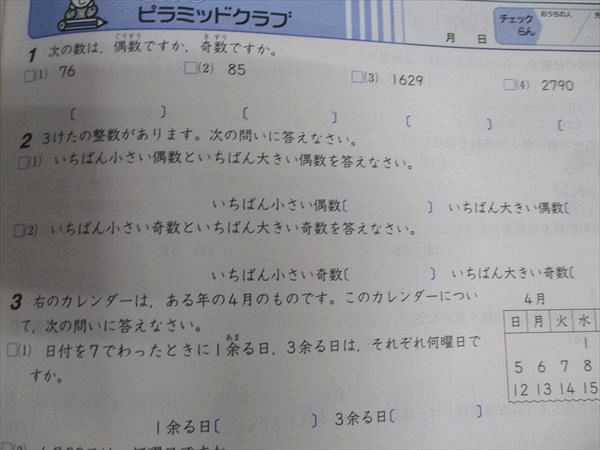 ピラミッドクラブ
チェックらん
おうちの人
月 日
1 次の数は，偶数ですか，奇数ですか。
ぐうすう きすう
□(1) 76 □(2) 85 □(3) 1629 □(4) 2790
〔 〕 〔 〕 〔 〕 〔 〕
2 3けたの整数があります。次の問いに答えなさい。
□(1) いちばん小さい偶数といちばん大きい偶数を答えなさい。
いちばん小さい偶数〔 〕 いちばん大きい偶数〔
□(2) いちばん小さい奇数といちばん大きい奇数を答えなさい。
いちばん小さい奇数〔 〕 いちばん大きい奇数〔
3 右のカレンダーは，ある年の4月のものです。このカレンダーについ
て，次の問いに答えなさい。
□(1) 日付を7でわったときに1余る日，3余る日は，それぞれ何曜日で
あま
すか。
1余る日〔 〕 3余る日〔 〕
4月
日 月 火 水
1
5 6 7 8
12 13 14 15